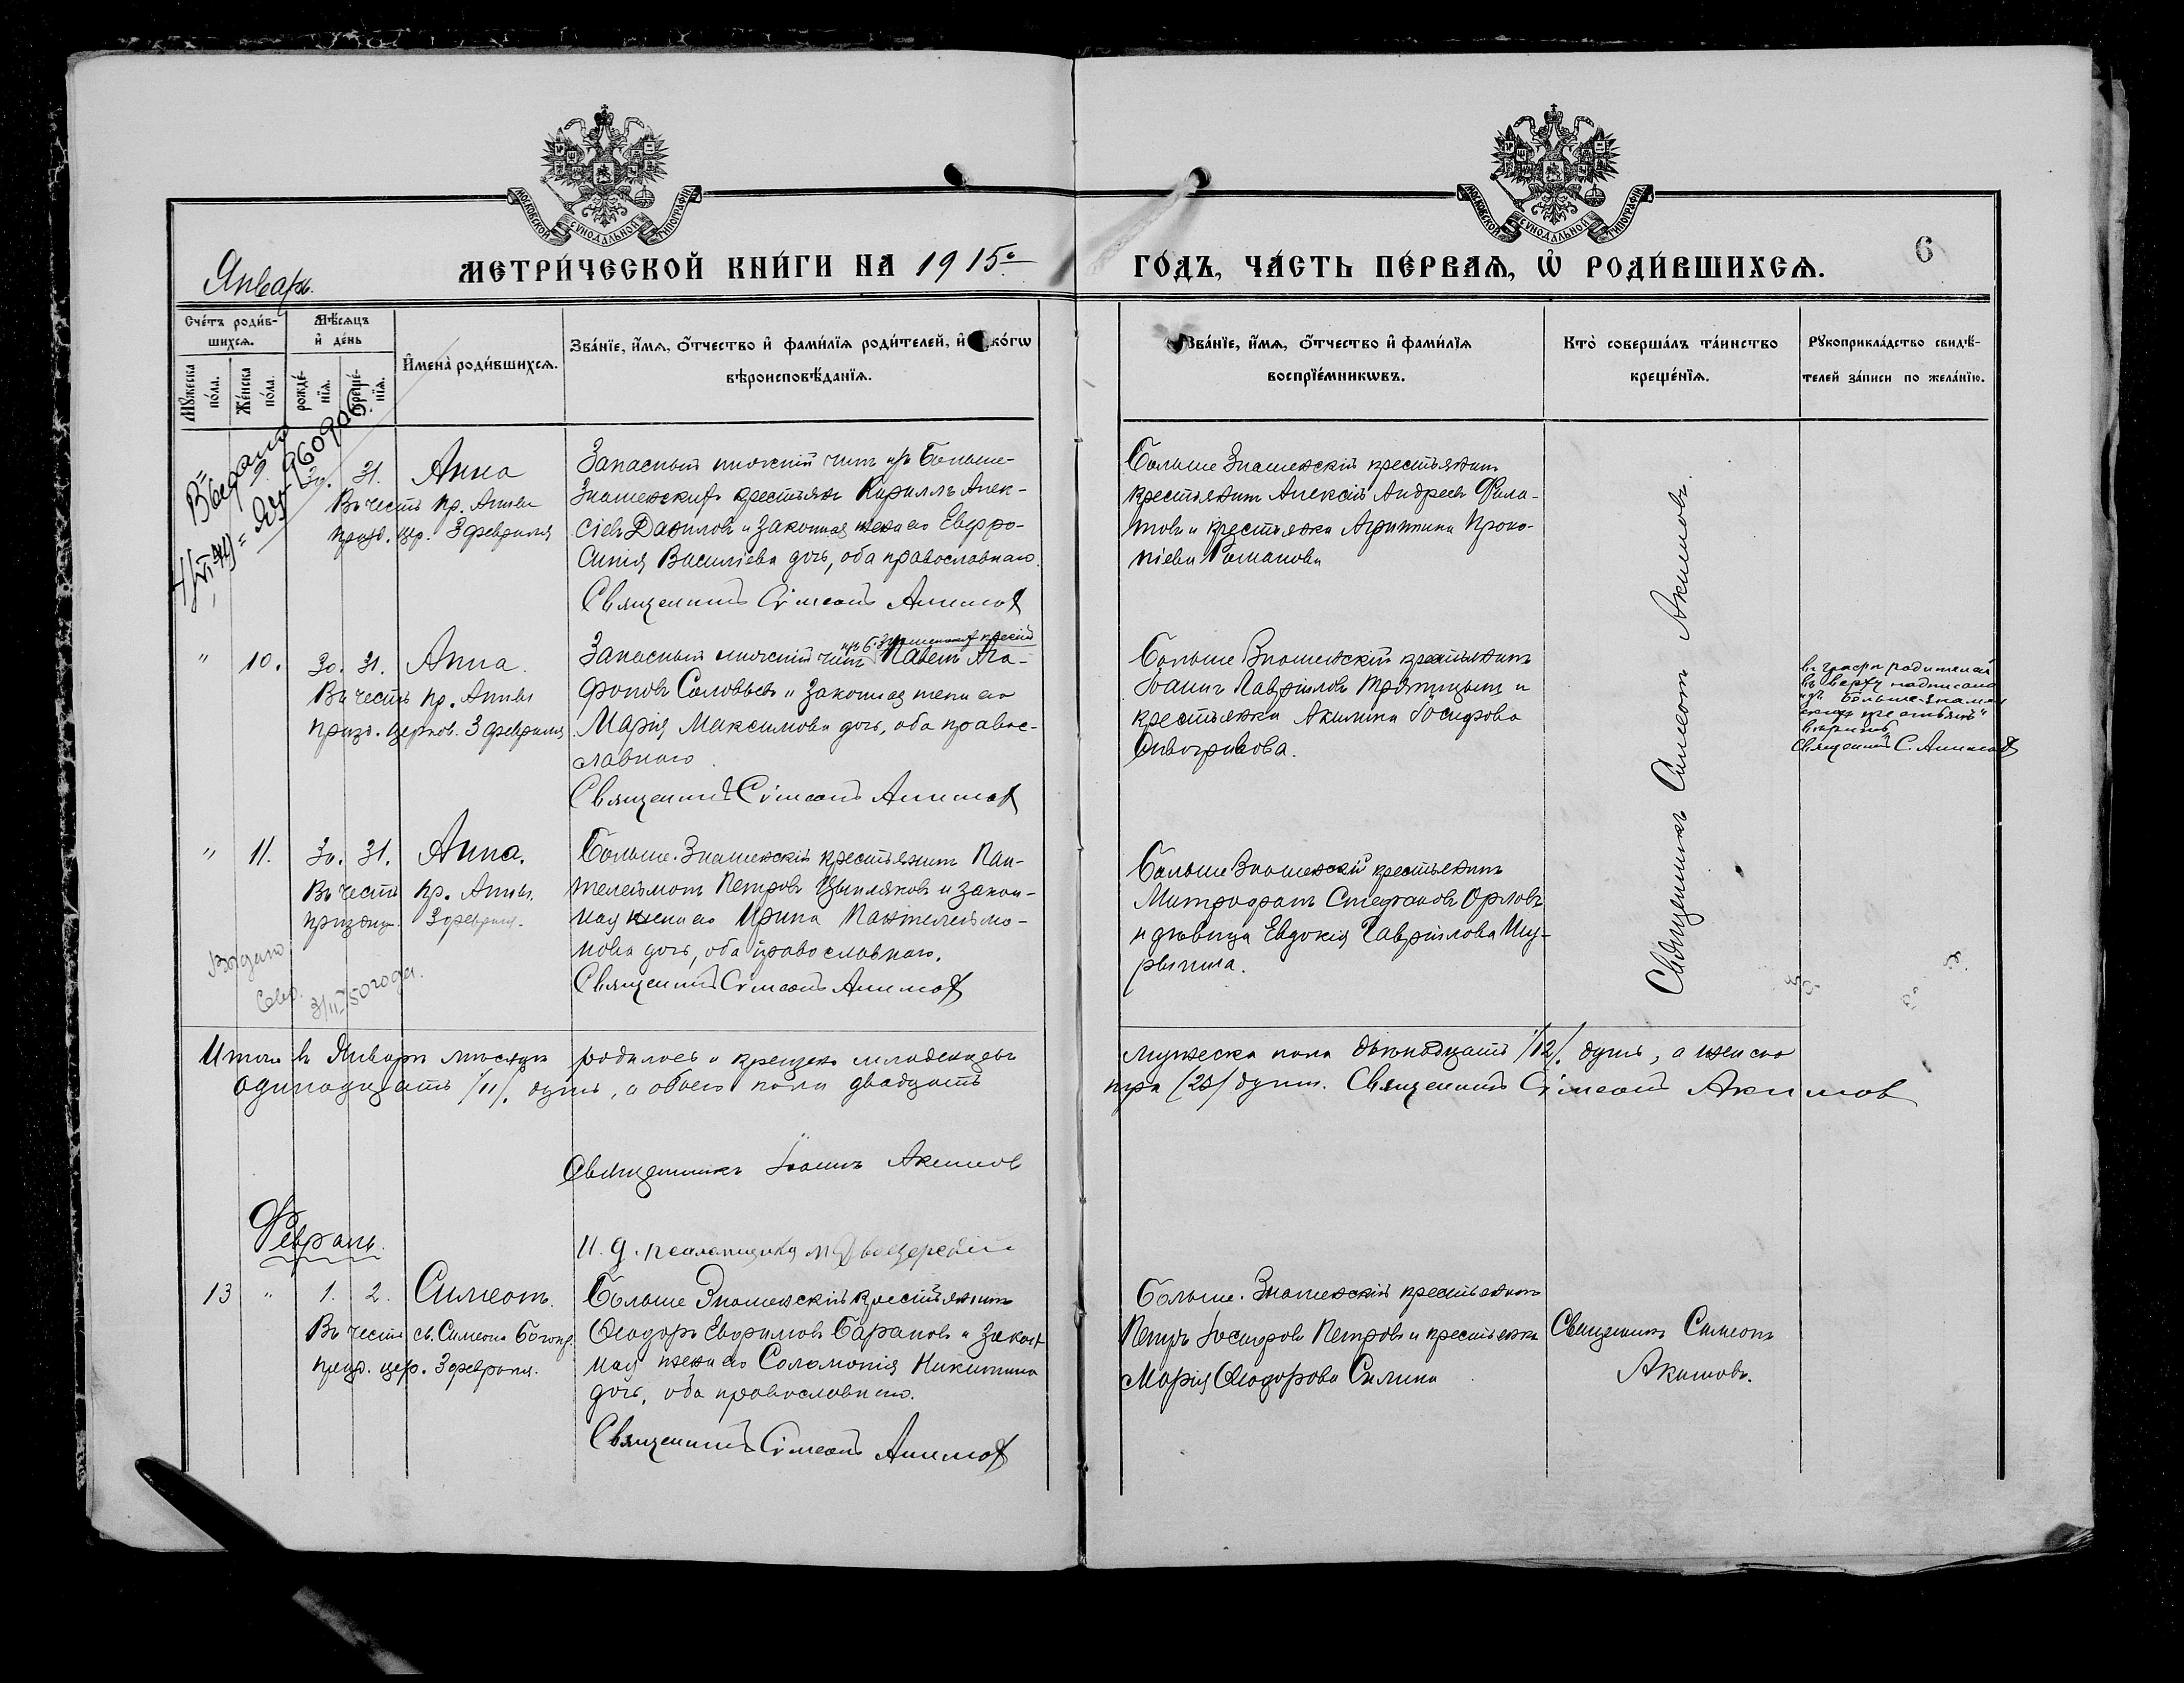 МОСКОВСКОЙ СУНОДАЛЬНОЙ ТИПОГРАФІИ
МОСКОВСКОЙ СУНОДАЛЬНОЙ ТИПОГРАФІИ
Январь.
МЕТРИ́ЧЕСКОЙ КНИ́ГИ НА 1915
ГО́ДЪ, ЧА́СТЬ ПЕ́РВАѦ, Ѡ҆ РОДИ́ВШИХСѦ.
6
Сче́тъ роди́в-
шихсѧ.
Мꙋжеска по́ла.
Же́нска по́ла.
Мѣ́сѧцъ
и҆ де́нь
рожде́-
нїѧ.
креще́-
нїѧ.
И҆мена̀ роди́вшихсѧ.
Зва́нїе, и҆́мѧ, ѻ҆́тчество и҆ фами́лїѧ роди́телей, и҆ ко́гѡ
вѣроисповѣ́данїѧ.
Зва́нїе, и҆́мѧ, ѻ҆́тчество и҆ фами́лїѧ
воспрїе́мникѡвъ.
Кто̀ соверша́лъ та́инство
креще́нїѧ.
Рꙋкоприкла́дство свидѣ́-
телей за́писи по жела́нїю.
Выдано
9. 30. 31. Анна
Въ честь пр. Анны
празд. цер. 3 февраля
Запасный нижній чинъ изъ Больше-
Знаменскихъ крестьянъ Кириллъ Алек-
сіевъ Даниловъ и законная жена его Евфро-
синія Василіева дочь, оба православнаго.
Священникъ Сѵмеонъ Акимовъ
Больше Знаменскій крестьянинъ
крестьянинъ Алексій Андреевъ Фила-
товъ и крестьянка Агриппина Проко-
піева Романова
" 10. 30. 31. Анна.
Въ честь пр. Анны
празд. церков. 3 февраля
изъ Б. Знаменскихъ крестьянъ
Запасный нижній чинъ Павелъ Ага-
фоновъ Соловьевъ и законная жена его
Марія Максимова дочь, оба правос-
лавнаго.
Священникъ Сѵмеонъ Акимовъ
Больше Знаменскій крестьянинъ
Іоаннъ Гавріиловъ и
крестьянка Акилина Іосифова
въ графѣ родителей
въ верху надписано
изъ Больше-Знамен
скихъ крестьянъ"
вѣрить
Священникъ С. Акимовъ
" 11. 30. 31. Анна.
Въ честь пр. Анны.
3 февраля.
Больше-Знаменскій крестьянинъ Пан-
телеімонъ Петровъ Цыпляковъ и закон-
ная жена его Ирина Пантелеімо-
нова дочь, оба православнаго.
Священникъ Сѵмеонъ Акимовъ
Больше Знаменскій крестьянинъ
Митрофанъ Стефановъ Орловъ
и дѣвица Евдокія Гавріилова Шу-
рыгина.
Священникъ Симеонъ Акимовъ.
Выдано
свид.
3/II 50 года.
Итого въ Январѣ мѣсяцѣ родилось и крещено младенцевъ мужеска пола двѣнадцать /12/ душъ, а женска
одинадцать /11/ душъ, а обоего пола двадцать три (23) душъ. Священникъ Сѵмеонъ Акимов
Священникъ Іоаннъ Акимов
И. д. псаломщика
Февраль.
13 " 1. 2. Симеонъ.
Въ честь св. Симеона Богопр.
празд. цер. 3 февраля.
Больше Знаменскій крестьянинъ
Ѳеодоръ Евфимовъ Барановъ и закон
ная жена его Соломонія Никитина
дочь, оба православнаго.
Священникъ Сѵмеонъ Акимовъ
Больше-Знаменскій крестьянинъ
Петръ Іосифовъ Петровъ и крестьянка
Марія Ѳеодорова Силина
Священникъ Симеонъ
Акимовъ.